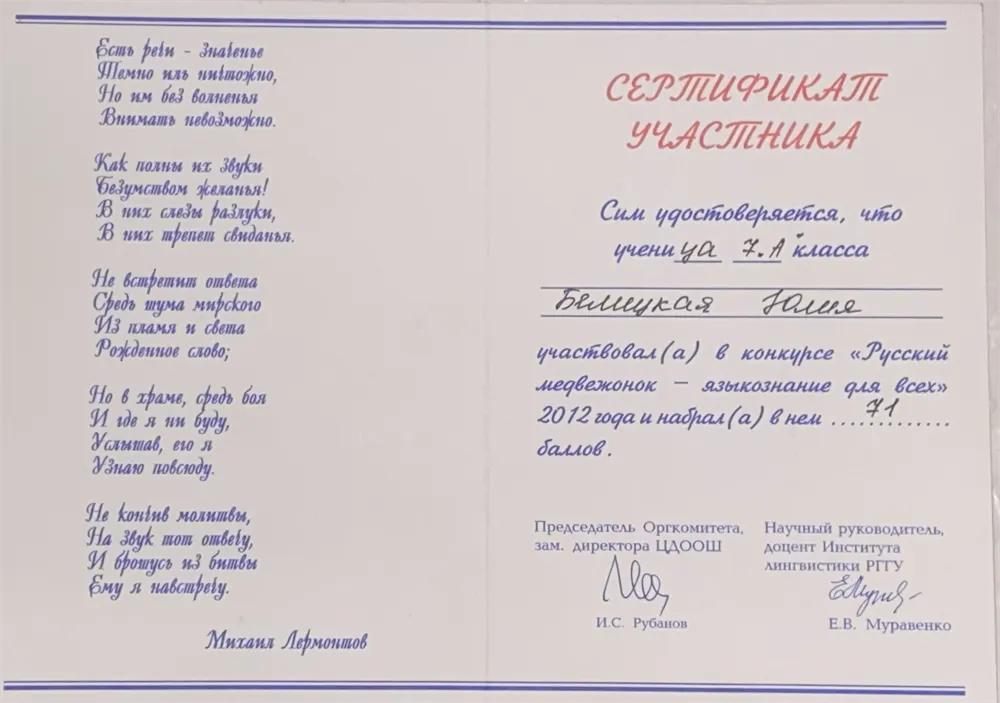 Есть речи - значенье
Темно иль ничтожно,
Но им без волненья
Внимать невозможно.
Как полны их звуки
Безумством желанья!
В них слезы разлуки,
В них трепет свиданья.
Не встретит ответа
Средь шума мирского
Из пламя и света
Рожденное слово;
Но в храме, средь боя
И где я ни буду,
Услышав, его я
Узнаю повсюду.
Не кончив молитвы,
На звук тот отвечу,
И брошусь из битвы
Ему я навстречу.
Михаил Лермонтов
СЕРТИФИКАТ
УЧАСТНИКА
Сим удостоверяется, что
учени ца 7.А класса
Белицкая Юлия
участвовал(а) в конкурсе «Русский
медвежонок – языкознание для всех»
2012 года и набрал(а) в нем ....71........
баллов.
Председатель Оргкомитета,
зам. директора ЦДООШ
И.С. Рубанов
Научный руководитель,
доцент Института
лингвистики РГГУ
Е.В. Муравенко